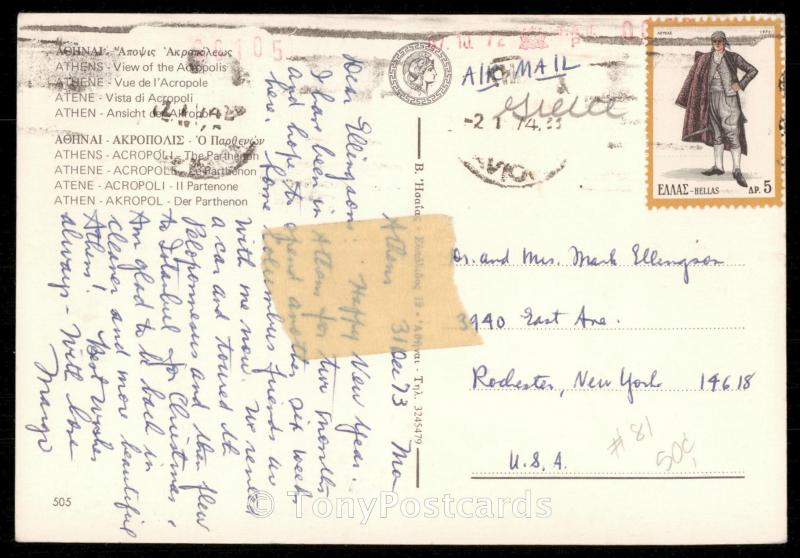 ΑΘΗΝΑΙ - Ἄποψις Ἀκροπόλεως
ATHENS - View of the Acropolis
ATHENE - Vue de l'Acropole
ATENE - Vista di Acropoli
ATHEN - Ansicht der Akropolis
ΑΘΗΝΑΙ - ΑΚΡΟΠΟΛΙΣ - Ὁ Παρθενών
ATHENS - ACROPOLI - The Parthenon
ATHENE - ACROPOLE - Le Parthenon
ATENE - ACROPOLI - Il Partenone
ATHEN - AKROPOL - Der Parthenon
Athens 31 Dec 73
Dear Ellingsons: Happy New Year.
I have been in Athens for two months
and hope to spend another six weeks
here. Some Columbus friends are
with me now. We rented
a car and toured the
Peloponnesus and then flew
to Istanbul for Christmas.
Am glad to be back in
cleaner and more beautiful
Athens! Best wishes
always - With love
Margo
505
Τηλ. 3245479
AIR MAIL
Greece
-2 1 74
ΕΛΛΑΣ-HELLAS ΔΡ. 5
Dr. and Mrs. Mark Ellingson
3940 East Ave.
Rochester, New York 14618
U.S.A.
#81
50¢
© TonyPostcards